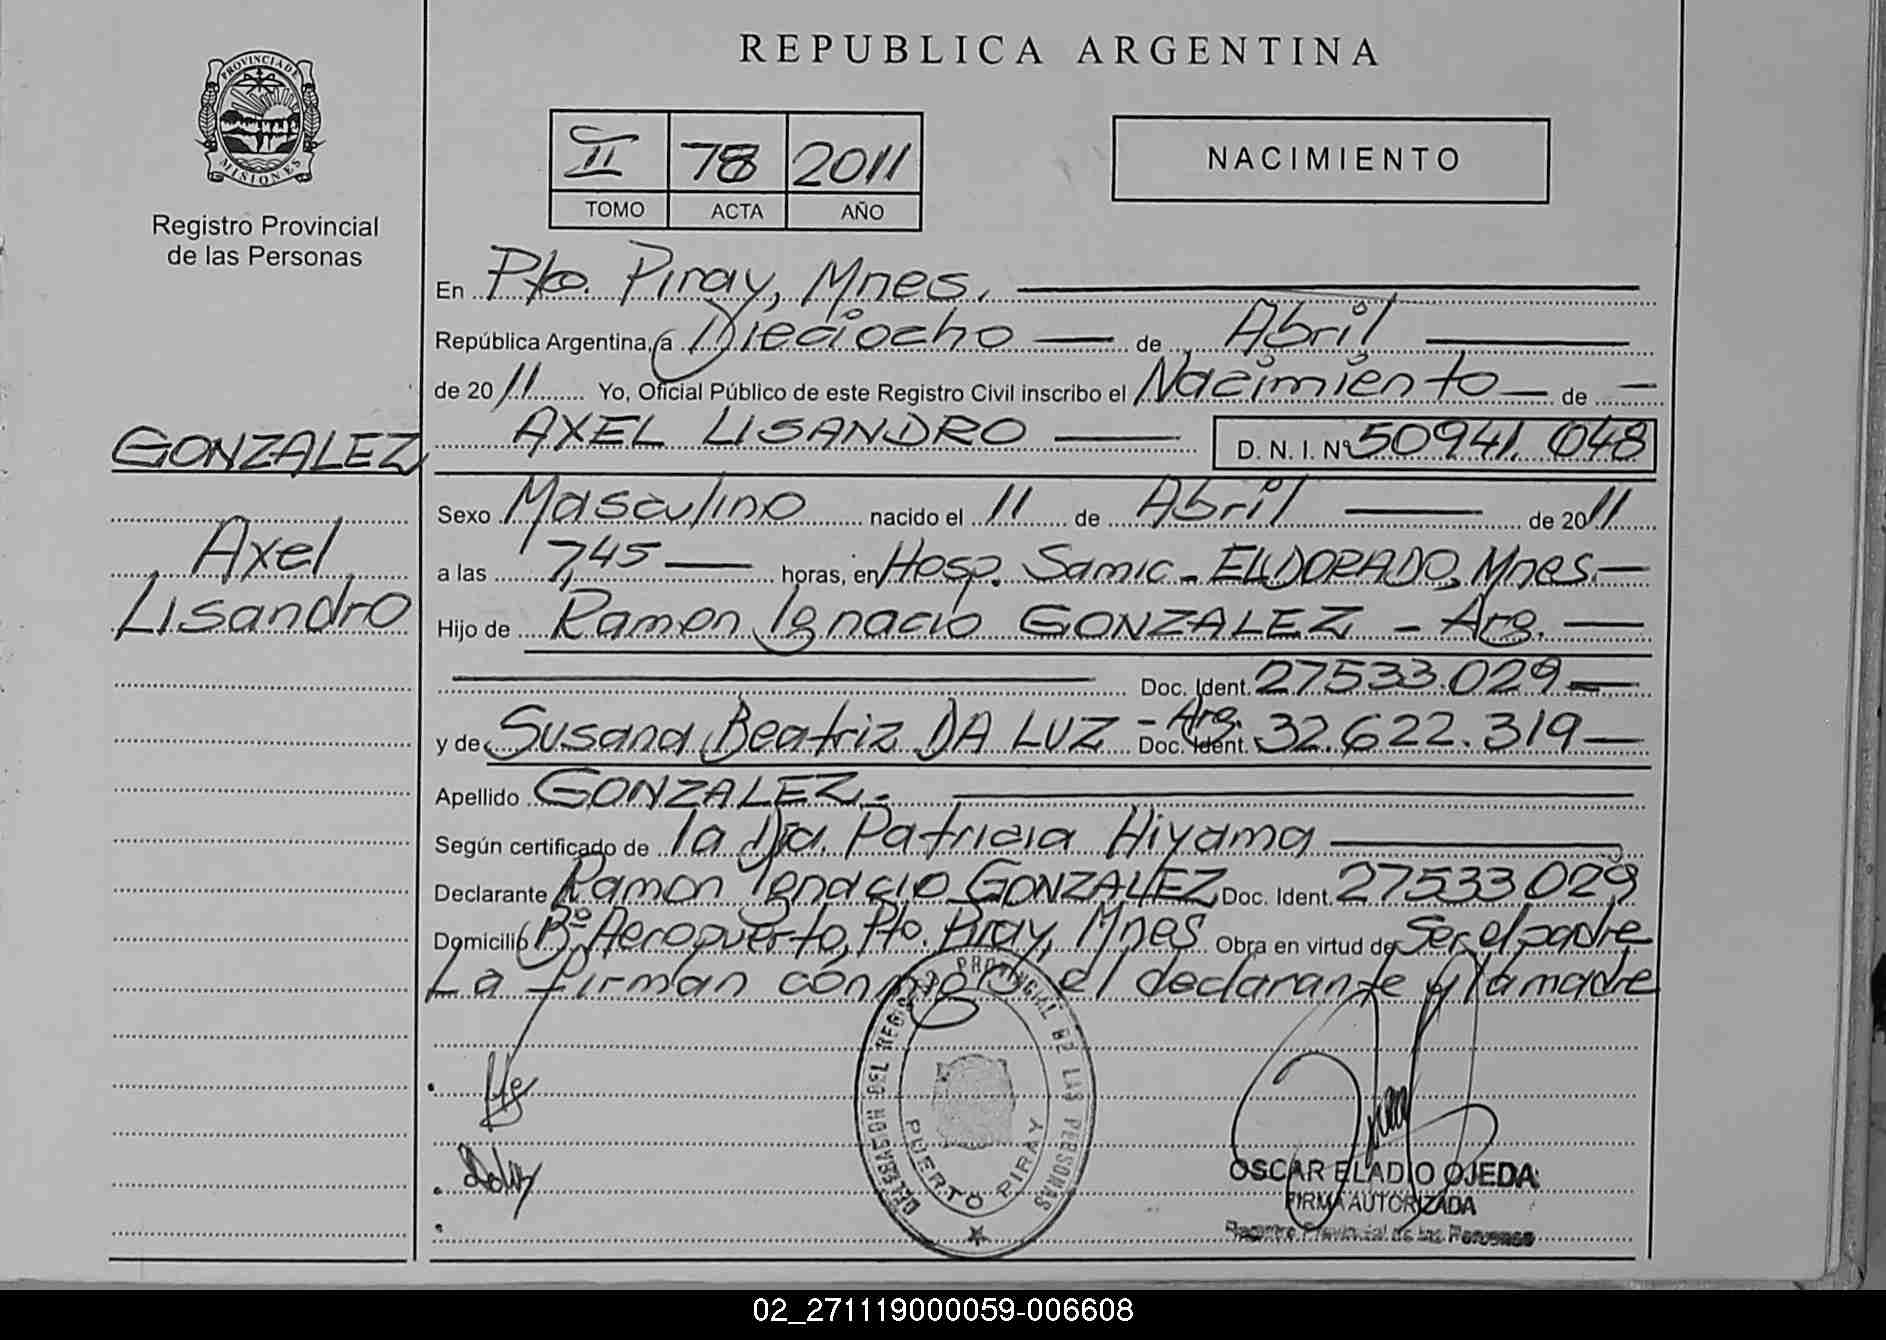 REPUBLICA ARGENTINA
PROVINCIA DE MISIONES
Registro Provincial
de las Personas
II 78 2011
TOMO ACTA AÑO
NACIMIENTO
En Pto. Piray, Mnes.
República Argentina, a Dieciocho de Abril
de 2011 Yo, Oficial Público de este Registro Civil inscribo el Nacimiento de
AXEL LISANDRO D. N. I. Nº 50941.048
GONZALEZ
Axel
Lisandro
Sexo Masculino nacido el 11 de Abril de 2011
a las 7,45 horas, en Hosp. Samic - ELDORADO, Mnes.
Hijo de Ramon Ignacio GONZALEZ - Arg.
Doc. Ident. 27533.029
y de Susana Beatriz DA LUZ - Arg. Doc. Ident. 32.622.319
Apellido GONZALEZ.-
Según certificado de la Dra. Patricia Hiyama
Declarante Ramon Ignacio GONZALEZ Doc. Ident. 27533029
Domicilio Bº Aeropuerto, Pto. Piray, Mnes Obra en virtud de Ser el padre
La firman conmigo el declarante y la madre
DELEGACION DEL REGISTRO PROVINCIAL DE LAS PERSONAS
PUERTO PIRAY
OSCAR ELADIO OJEDA
FIRMA AUTORIZADA
Registro Provincial de las Personas
02_271119000059-006608